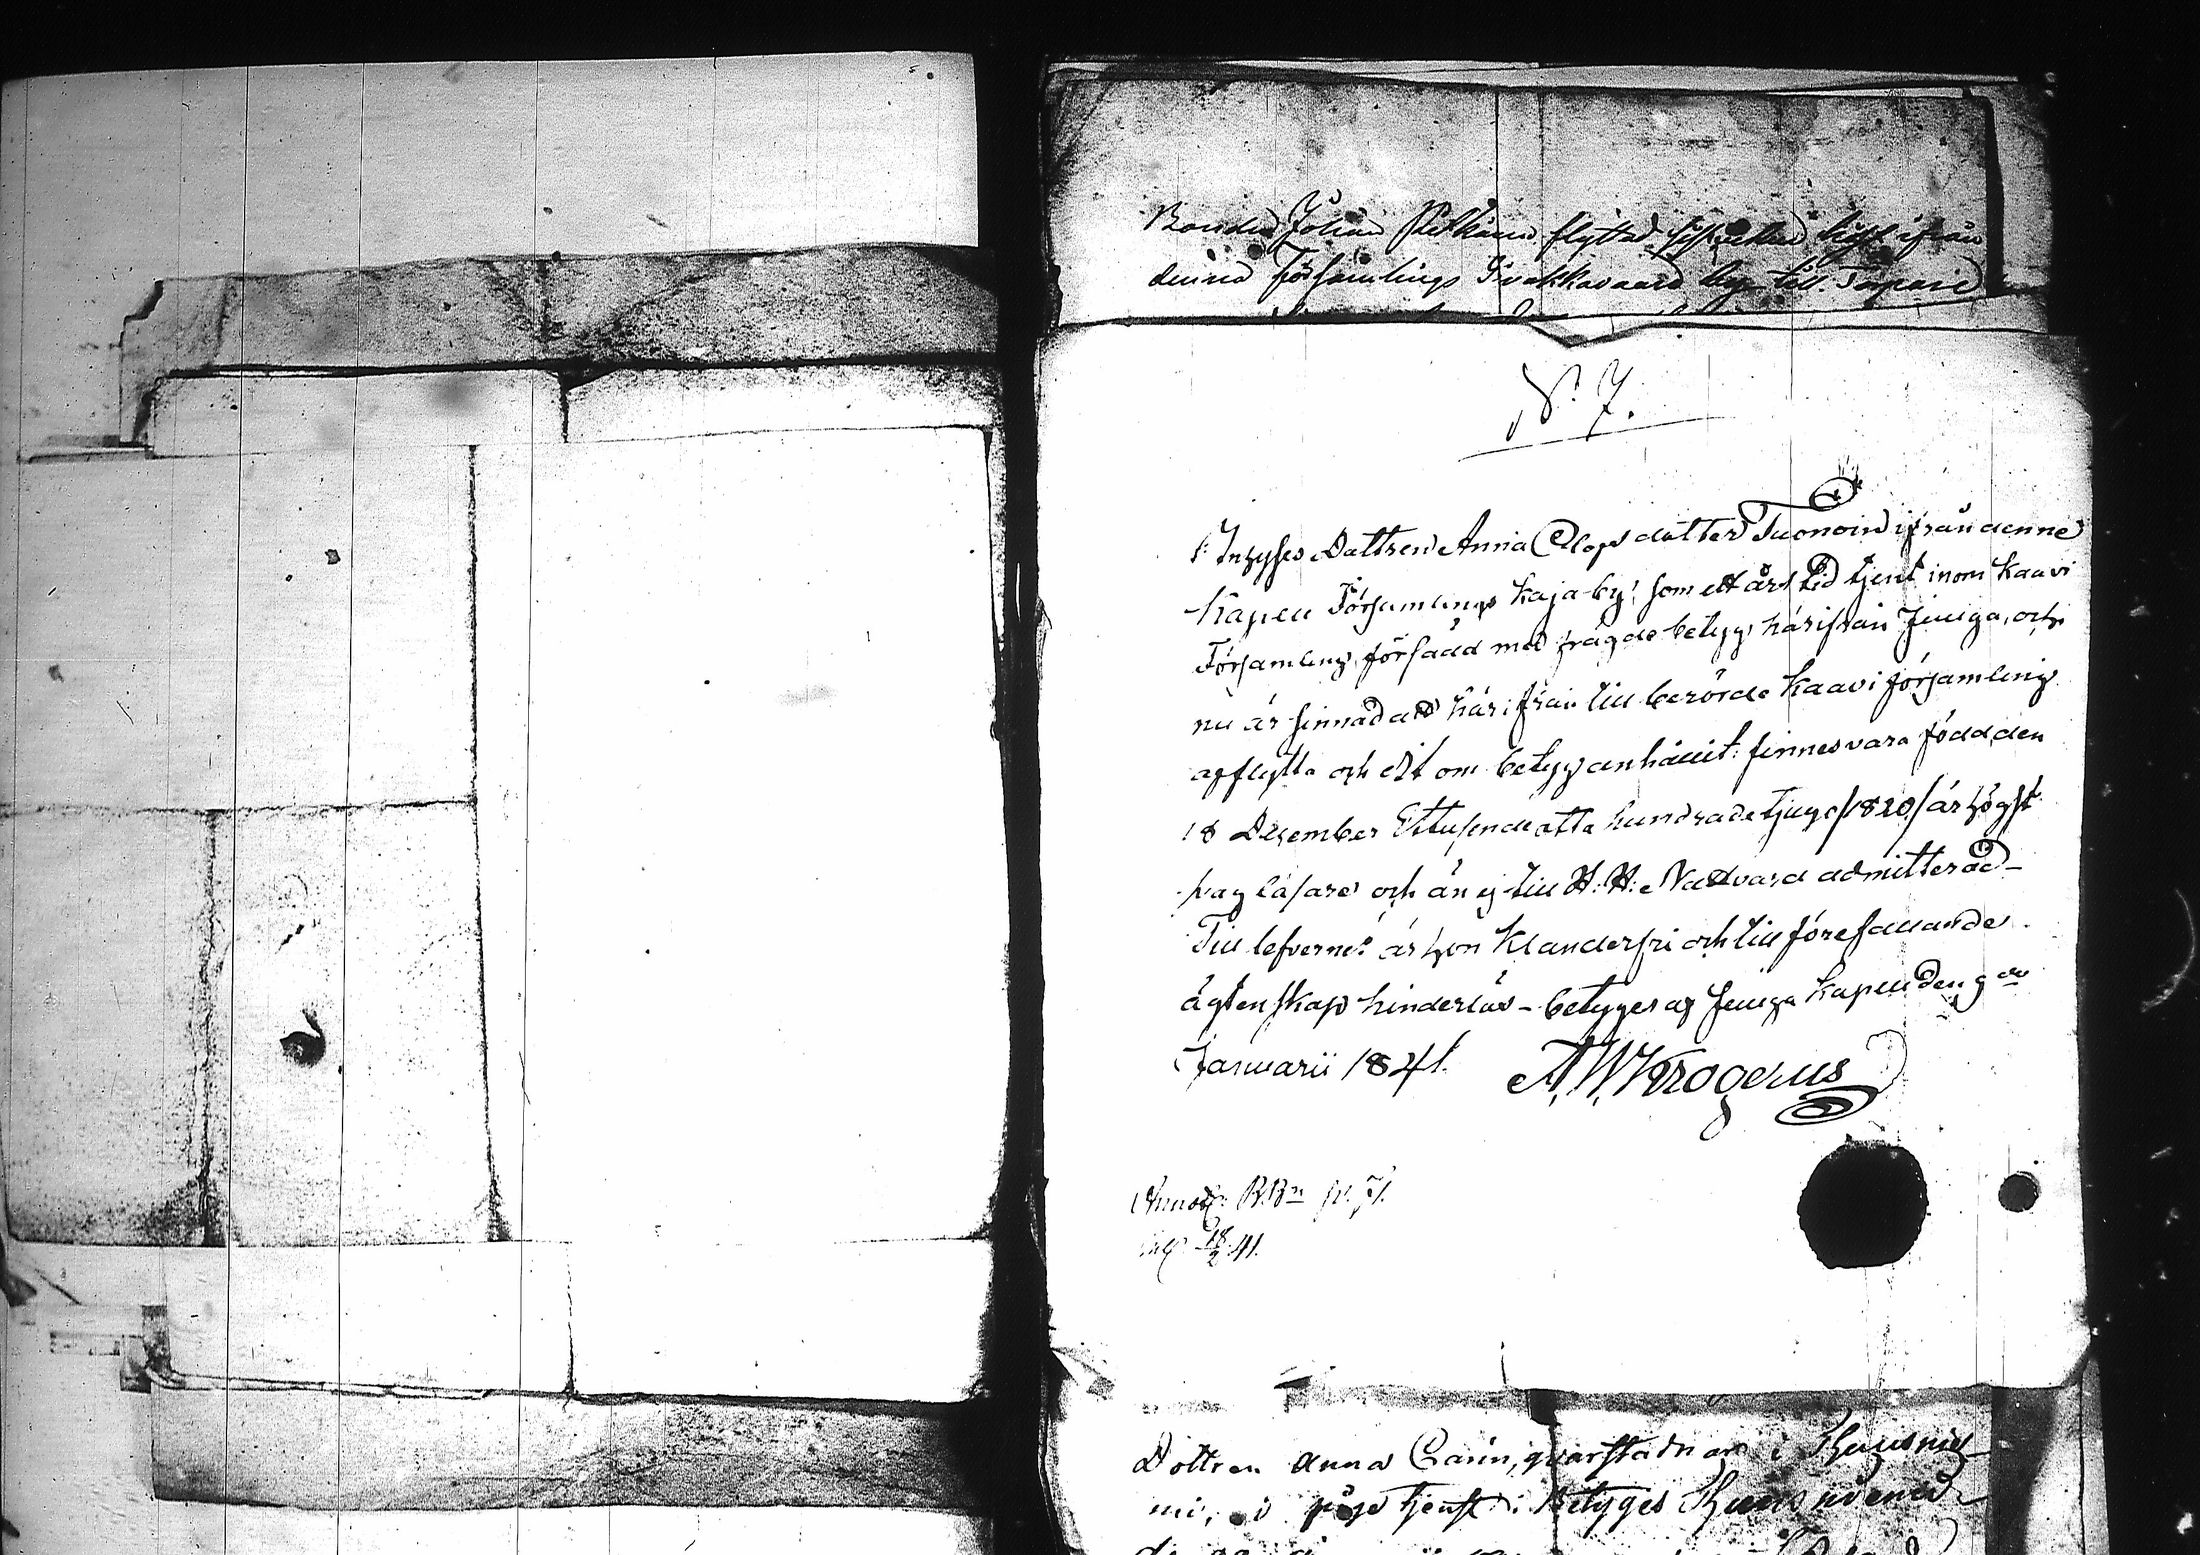 Bonden Johan flyttad ifrån
denna Församlings by till
N:o 7.
Inhyses Dottren Anna Olofsdotter Tuonoin ifrån denne
Kapell Församlings Kaja by, som ett års tid tjent inom Kaavi
Församling, försädd med frägde betyg härifrån Jeuga, och
nu är sinnad att härifrån till berörde Kaavi församling
afflytta och dit om betyg anhållit: finnes vara född den
18 December Ettusende otta hundrade tjugo /1820/ är högst
svag läsare och än ej till H. H. Nattvard admitterad –
Till lefverne är hon klanderfri och till förefallande
ägtenskap hinderlös – betyges af Jeuga Kapell den 9de
Januarii 1841. A. W. Krogerus
Annot: B.Bn p. 71.
18/2 41.
Dottren Anna Carin, qvarstadnar i
mi, i tjenst. Betyges